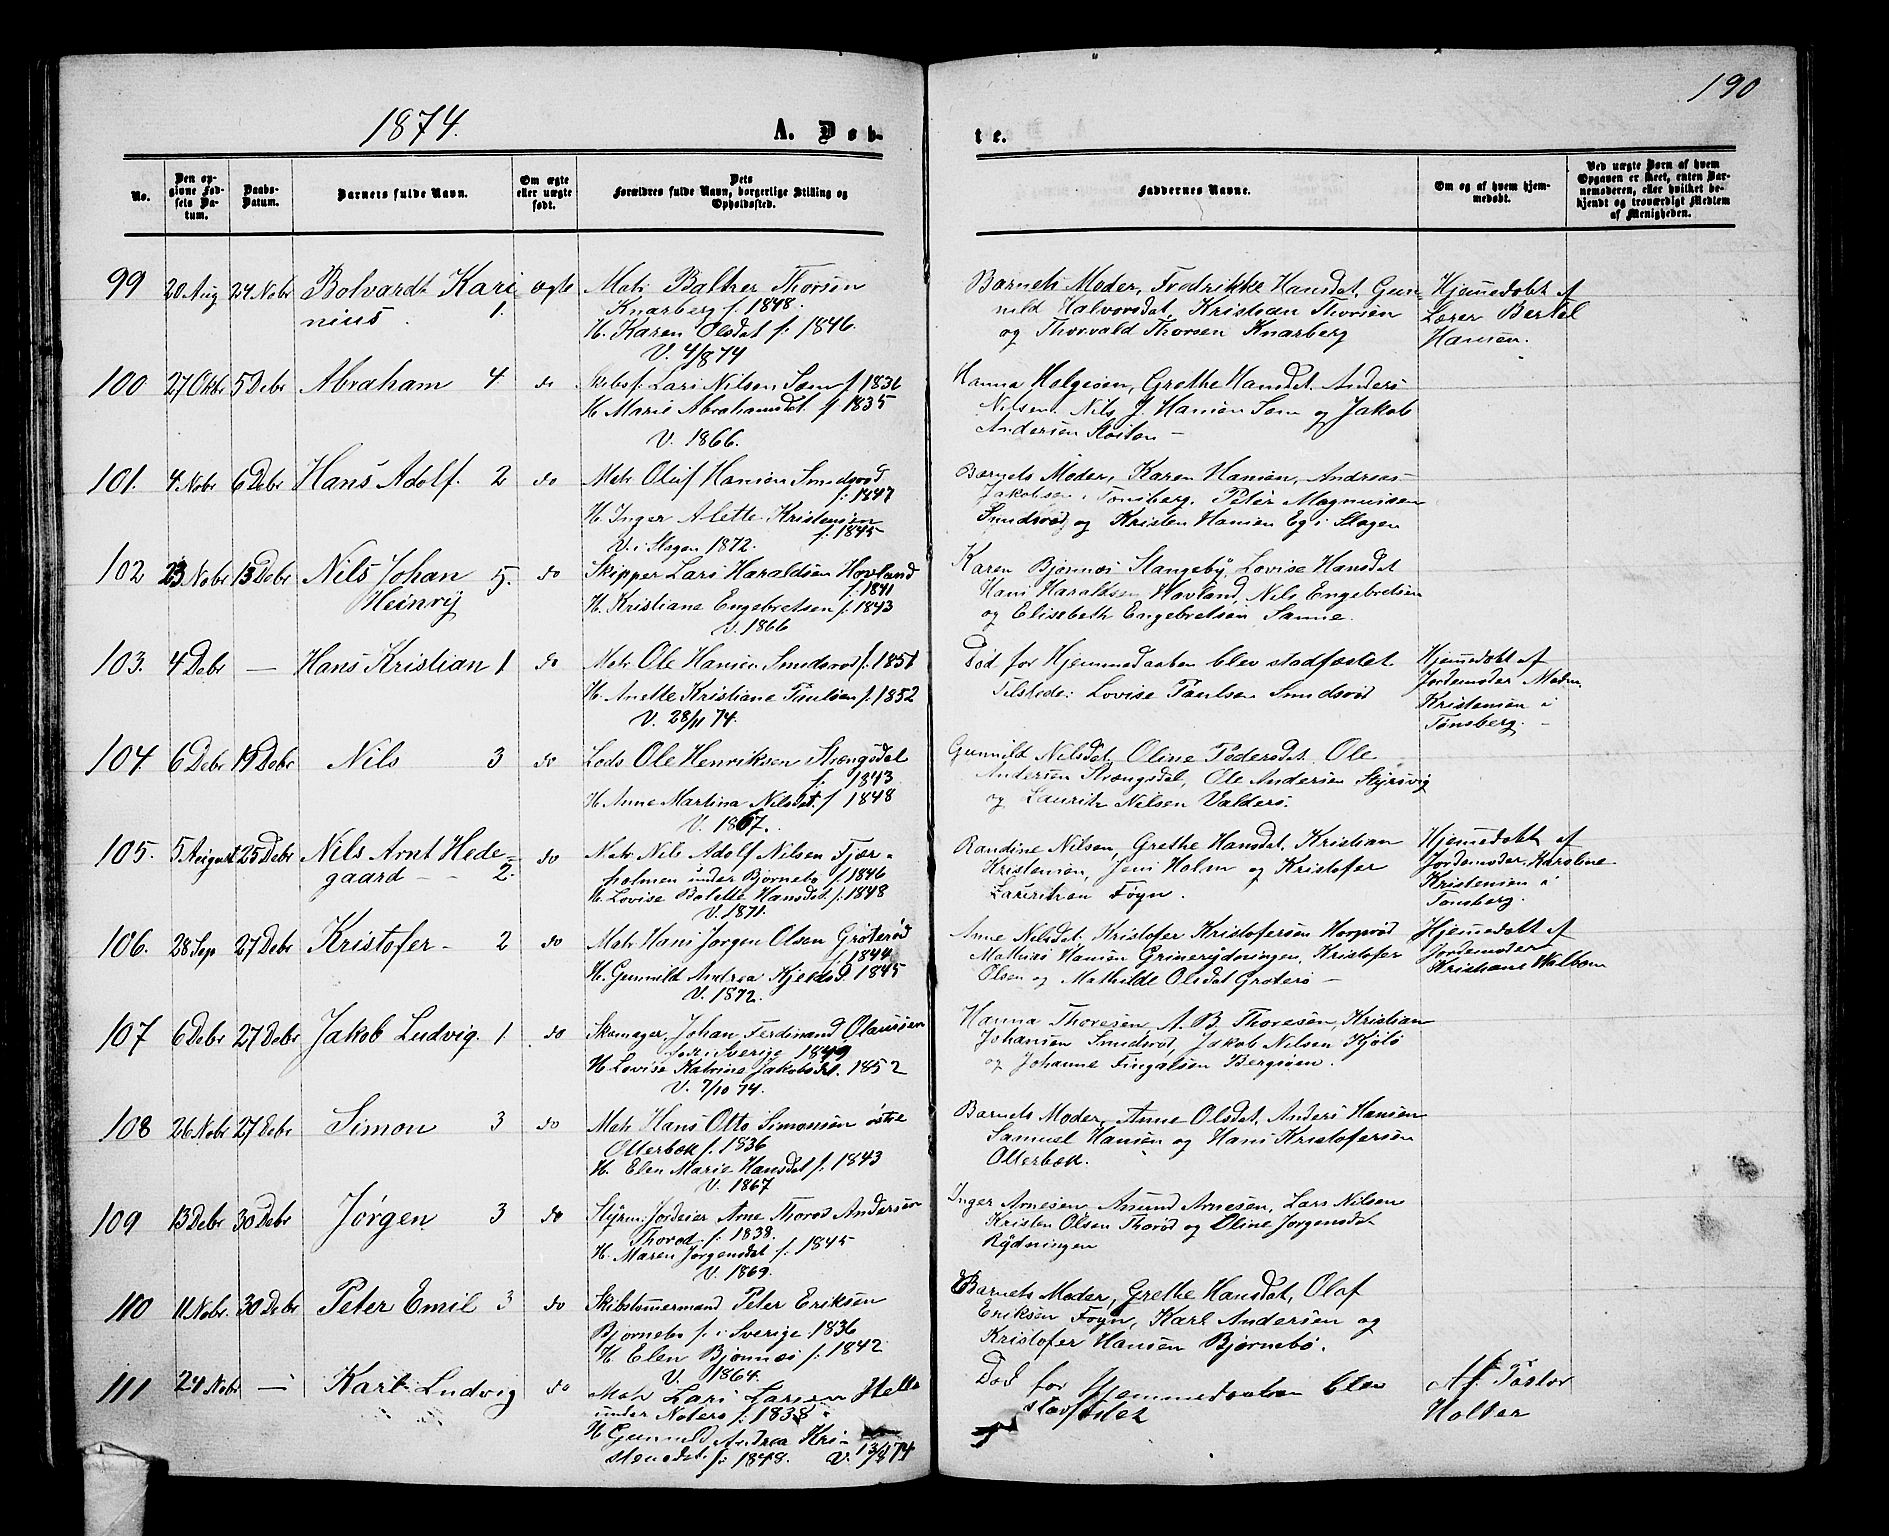 190
1874.
A. Døb-
te.
No.
Den op-
givne Fød-
sels Da-
tum.
Daabs-
Datum.
Barnets fulde Navn.
Om ægte
eller uægte
født.
Dets
Forældres fulde Navn, borgerlige Stilling og
Opholdssted.
Faddernes Navne.
Om og af hvem hjem-
medøbt.
Ved uægte Barn af hvem
Opgaven er skeet, enten Bar-
nemoderen, eller hvilket be-
kjendt og troværdigt Medlem
af Menigheden.
99 20 Aug 24 Nobr Bolvardt Kari-
nius. 1. ægte
Matr Balther Thorsen
Knarberg f. 1848.
H. Karen Olsdat f. 1846.
V. 4/874
Barnets Moder, Fredrikke Hansdat, Gun-
nild Halvorsdat, Kristian Thorsen
og Thorvald Thorsen Knarberg
Hjemmedøbt af
Lærer Bertel
Hansen.
100 27 Okbr 5 Debr Abraham 4 do
Skibsf. Lars Nilsen Sem f 1836
H. Marie Abrahamsdat f 1835
V. 1866.
Hanna Holgesen, Grethe Hansdat, Anders
Nilsen, Nils J. Hansen Sem og Jakob
Andersen
101. 4 Nobr 6 Debr Hans Adolf. 2 do
Matr Oluf Hansen Smidsrød
f. 1847
H. Inger Alette Kristensen
f. 1845
V. i Slagen 1872.
Barnets Moder, Karen Hansen, Andreas
Jakobsen i Tønsberg, Peter Magnusen
Smidsrød og Kristen Hansen Eg i Slagen
102 23 Nobr 13 Debr Nils Johan 5. do
Heinrij
Skipper Lars Haraldsen Hovland
f. 1841
H. Kristiane Engebretsen f. 1843
V. 1866
Karen Bjønnes Stangeby, Lovise Hansdat
Hans Haraldsen Hovland, Nils Engebretsen
og Elisabeth Engebretsen Sanne.
103. 4 Debr — Hans Kristian 1 do
Matr Ole Hansen Smidsrød f. 1851
H. Anette Kristiane Paulsen f. 1852
V. 28/11 74.
Død før Hjemmedaaben blev stadfæstet
Tilstede: Lovise Paulsen Smidsrød
Hjemmedøbt af
Jordemoder Madm.
Kristensen i
Tønsberg. -
104. 6 Debr 19 Debr Nils 3 do
Lods Ole Henriksen Strengsdal
f. 1843
H. Anne Martina Nilsdat. f 1848
V. 1867.
Gunnild Nilsdat, Oline Pedersdat, Ole
Andersen Strengsdal, Ole Andersen Styrsvig
og Lauritz Nilsen Valders.
105. 5 August 25 Debr Nils Arnt Hede-
gaard - - 2. do
Matr Nils Adolf Nilsen Fjær-
holmen under Bjørnebo f 1846
H. Lovise Bolette Hansdat. f. 1848
V. 1871.
Randine Nilsen, Grethe Hansdat, Kristian
Kristensen, Jens Holm og Kristofer
Lauritzen Føyn.
Hjemmedøbt af
Jordemoder Karoline
Kristensen i
Tønsberg.
106. 28 Sep 27 Debr Kristofer - 2 do
Matr Hans Jørgen Olsen Grøterød
f. 1844
H. Gunnild Andrea Kjelsd. 1845
V. 1872.
Anne Nilsdat, Kristofer Kristofersen
Mathias Hansen Grinerydningen, Kristofer
Olsen og Mathilde Olsdat Grøterø -
Hjemmedøbt af
Jordemoder
Kristiane Walbom
107 6 Debr 27 Debr Jakob Ludvig. 1 do
Skomager Johan Ferdinand Olaussen
født i Sverige 1849
H Lovise Katrine Jakobsdat. 1852
V. 7/10 74.
Hanna Thoresen, A. B. Thoresen, Kristian
Johansen Smidsrød, Jakob Nilsen Kjøle
og Johanne Fingalsen Bergsøen.
108 26 Nobr 27 Debr Simon 3 do
Matr Hans Otto Simonsen østre
Otterbæk f. 1836
H. Elen Marie Hansdat f. 1843
V. 1867
Barnets Moder, Anne Olsdat, Anders Hansen
Samuel Hansen og Hans Kristofersen
Otterbæk.
109 13 Debr 30 Debr Jørgen 3 do
Styrm. Jordeier Arne Thorød Andersen
Thorød f. 1838.
H. Maren Jørgensdat f. 1845
V. 1869.
Inger Arnesen, Amund Arnesen, Lars Nilsen
Kristen Olsen Thorød og Oline Jørgensdat
Rydningen
110 11 Nobr. 30 Debr Peter Emil 3 do
Skibstømmermand Peter Eriksen
Bjørnebo f. i Sverige 1836
H Elen Bjønnes f. 1842
V. 1864.
Barnets Moder, Grethe Hansdat, Olaf
Eriksen Føyn, Karl Andersen og
Kristofer Hansen Bjørnebø.
111 24 Nobr — Karl Ludvig do
Matr Lars Larsen Hella
under Noterø f. 1838
H Gunnild Andrea Kri-
stensdat. f. 1848. V. 13/ 74
Død før Hjemmedaaben blev
stadfæstet
Af Pastor
Holter